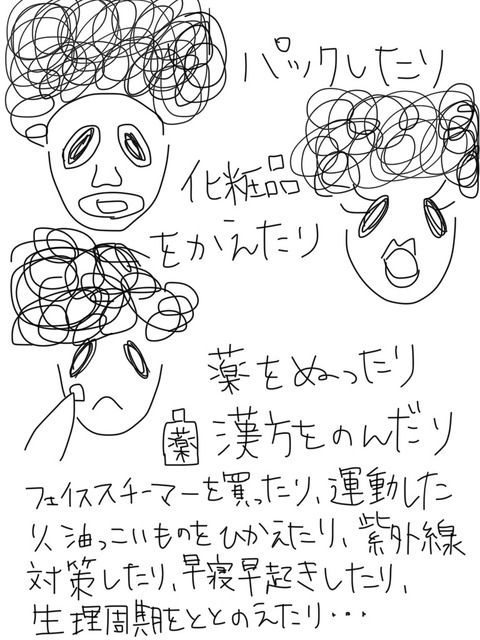 パックしたり
化粧品
をかえたり
薬をぬったり
薬
漢方をのんだり
フェイススチーマーを買ったり、運動した
り、油っこいものをひかえたり、紫外線
対策したり、早寝早起きしたり、
生理周期をととのえたり・・・